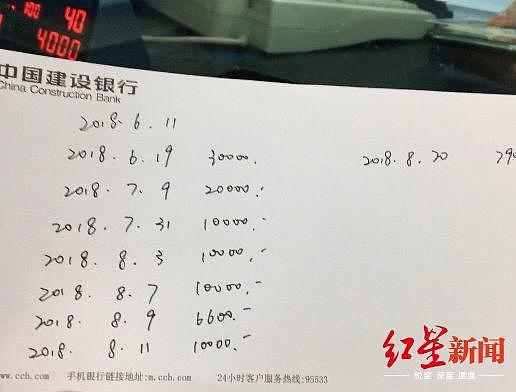 100 40
4000
中国建设银行
China Construction Bank
2018.6.11
2018.6.19 30000.
2018.8.20 790
2018.7.9 20000.-
2018.7.31 10000.-
2018.8.3 10000.-
2018.8.7 10000.-
2018.8.9 6600.-
2018.8.11 10000.-
www.ccb.com 手机银行链接地址:m.ccb.com 24小时客户服务热线:95533
红星新闻
深度 温度